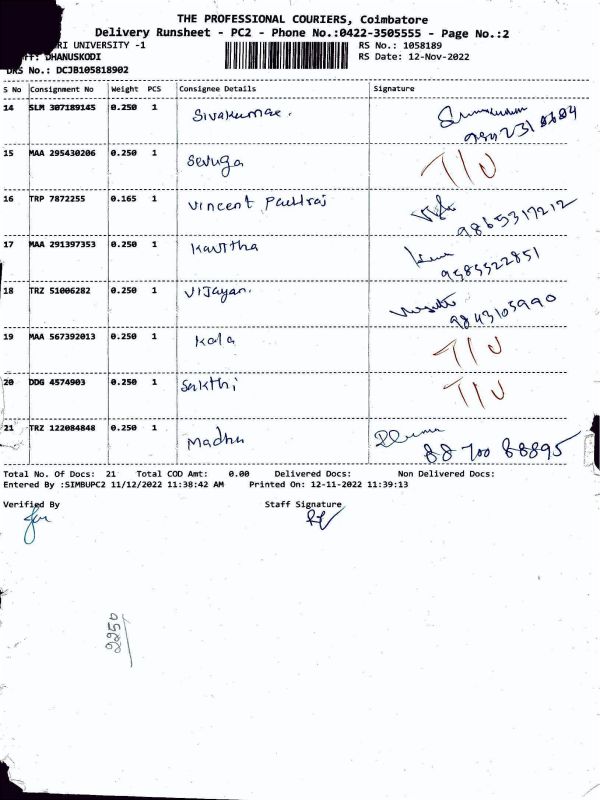 THE PROFESSIONAL COURIERS, Coimbatore
Delivery Runsheet - PC2 - Phone No.:0422-3505555 - Page No.:2
RI UNIVERSITY -1 RS No.: 1058189
: DHANUSKODI RS Date: 12-Nov-2022
DRS No.: DCJB105818902
S No Consignment No Weight PCS Consignee Details Signature
14 SLM 307189145 0.250 1 Sivakumar.
15 MAA 295430206 0.250 1 Sevuga T/U
16 TRP 7872255 0.165 1 Vincent Paulraj
9865317212
17 MAA 291397353 0.250 1 Kavitha
9585522851
18 TRZ 51006282 0.250 1 Vijayan.
9843105990
19 MAA 567392013 0.250 1 Kala T/U
20 DDG 4574903 0.250 1 Sakthi T/U
21 TRZ 122084848 0.250 1 Madhu
88 700 88895
Total No. Of Docs: 21 Total COD Amt: 0.00 Delivered Docs: Non Delivered Docs:
Entered By :SIMBUPC2 11/12/2022 11:38:42 AM Printed On: 12-11-2022 11:39:13
Verified By Staff Signature
2250